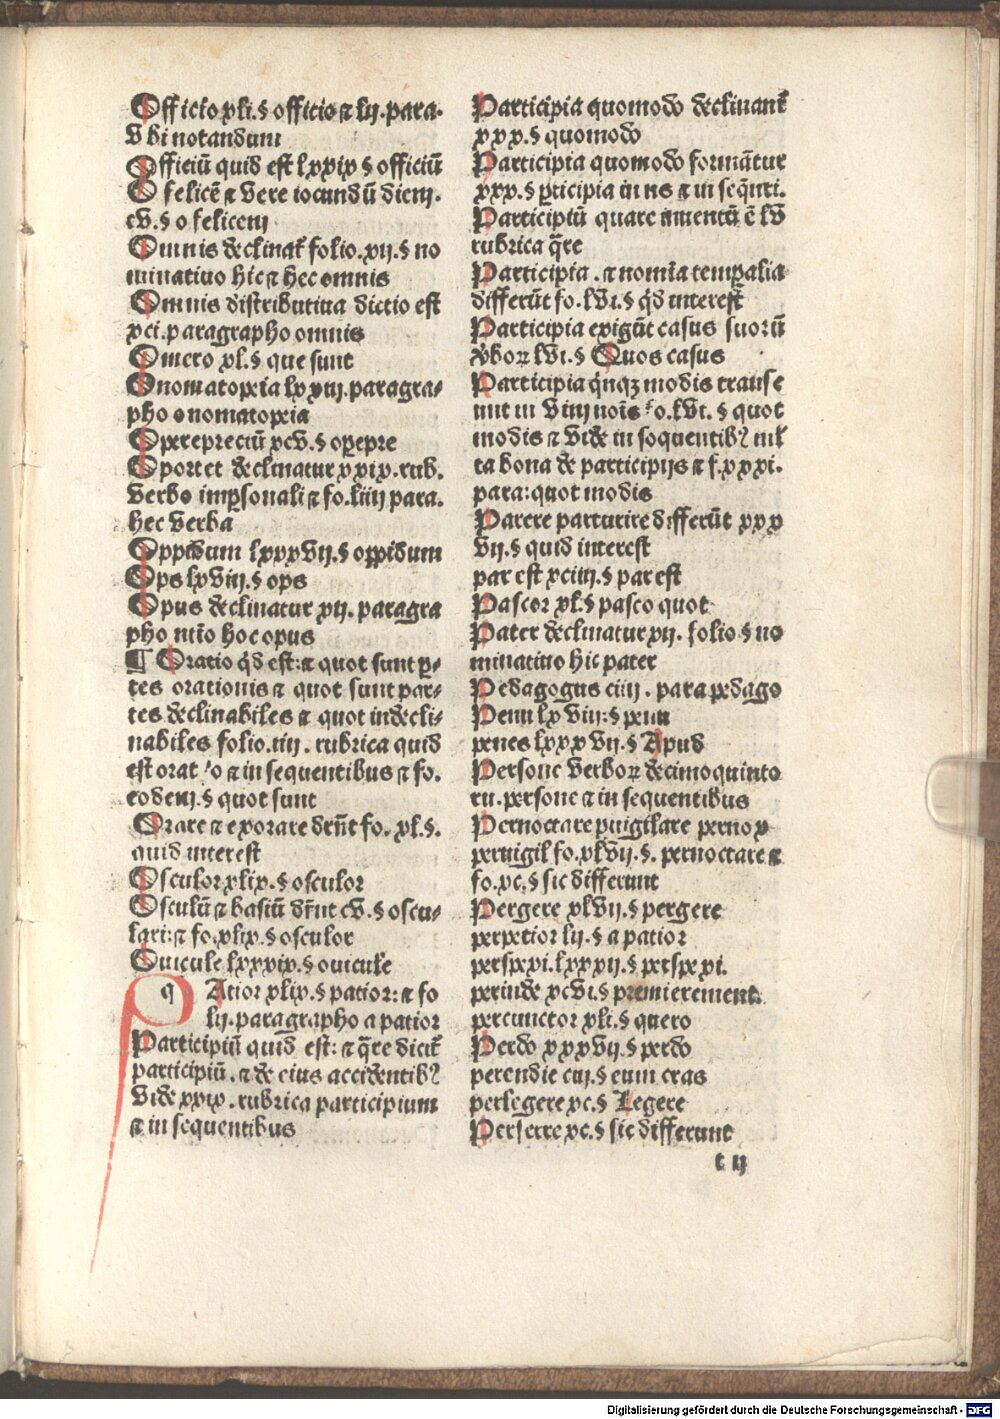 Officio xli.§ officio ⁊ lij. para.
Vbi notandum
Officiū quid est lxxix § officiū
O felicē ⁊ vere iocundū diem.
cv.§ o felicem
Omnis declinat̄ folio.xij.§ no
minatiuo hic ⁊ hec omnis
Omnis distributiua dictio est
xci.paragrapho omnis
Omero xl.§ que sunt
Onomatopeia lxxiij.paragra⸗
pho onomatopeia
Operepreciū xcv.§ operepre
Oportet declinatur xxix.rub.
verbo imꝑsonali ⁊ fo.liiij para.
hec verba
Oppidum lxxxvij.§ oppidum
Ops lxviij.§ ops
Opus declinatur xij. paragra
pho nt̄io hoc opus
¶ Oratio qd̄ est:⁊ quot sunt ꝑ⸗
tes orationis ⁊ quot sunt par⸗
tes declinabiles ⁊ quot indecli⸗
nabiles folio.iiij. rubrica quid
est oratio ⁊ in sequentibus ⁊ fo.
eodem.§ quot sunt
Orare ⁊ exorare drn̄t fo. xl.§.
quid interest
Osculor xlix.§ osculor
Osculū ⁊ basiū dr̄nt cv.§ oscu⸗
lari:⁊ fo.xlix.§ osculor
Ouicule lxxxix.§ ouicule
Patior xlix.§ patior:⁊ fo
lij.paragrapho a patior
Participiū quid est:⁊ q̄re dicit̄
participiū.⁊ de eius accidentibꝰ
vide xxix.rubrica participium
⁊ in sequentibus
Participia quomodo declinant̄
xxx.§ quomodo
Participia quomodo formātur
xxx.§ ꝑticipia in ns ⁊ in seq̄nti.
Participiū quare inuentū ē lv
rubrica q̄re
Participia.⁊ nomīa temꝑalia
differūt fo.lvi.§ qd̄ interest
Participia exigūt casus suorū
v̄boꝝ lvi.§ Quos casus
Participia qn̄qꝫ modis transe
unt in vim noīs fo.lvi.§ quot
modis ⁊ vide in soquentibꝰ ml̄
ta bona de participijs ⁊ f.xxxi.
para:quot modis
Parere parturire differūt xxx
vij.§ quid interest
par est xciiij.§ par est
Pascor xl.§ pasco quot
Pater declinatur xij. folio § no
minatiuo hic pater
Pedagogus ciiij. para pedago
Penu lxviij:§ penu
penes lxxxvij.§ Apud
Persone verboꝝ decimoquinto
ru.persone ⁊ in sequentibus
Pernoctare puigilare pernox
peruigil fo.xlvij.§. pernoctare ⁊
fo.xc.§ sic differunt
Pergere xlvij.§ pergere
perpetior lij.§ a patior
perspexi.lxxxij.§ perspexi.
perinde xcvi.§ premierement.
percunctor xli.§ quero
Perdo xxxvij.§ perdo
perendie cij.§ eum cras
perlegere xc.§ Legere
Perferre xc.§ sic differunt
t ij
Digitalisierung gefördert durch die Deutsche Forschungsgemeinschaft - DFG